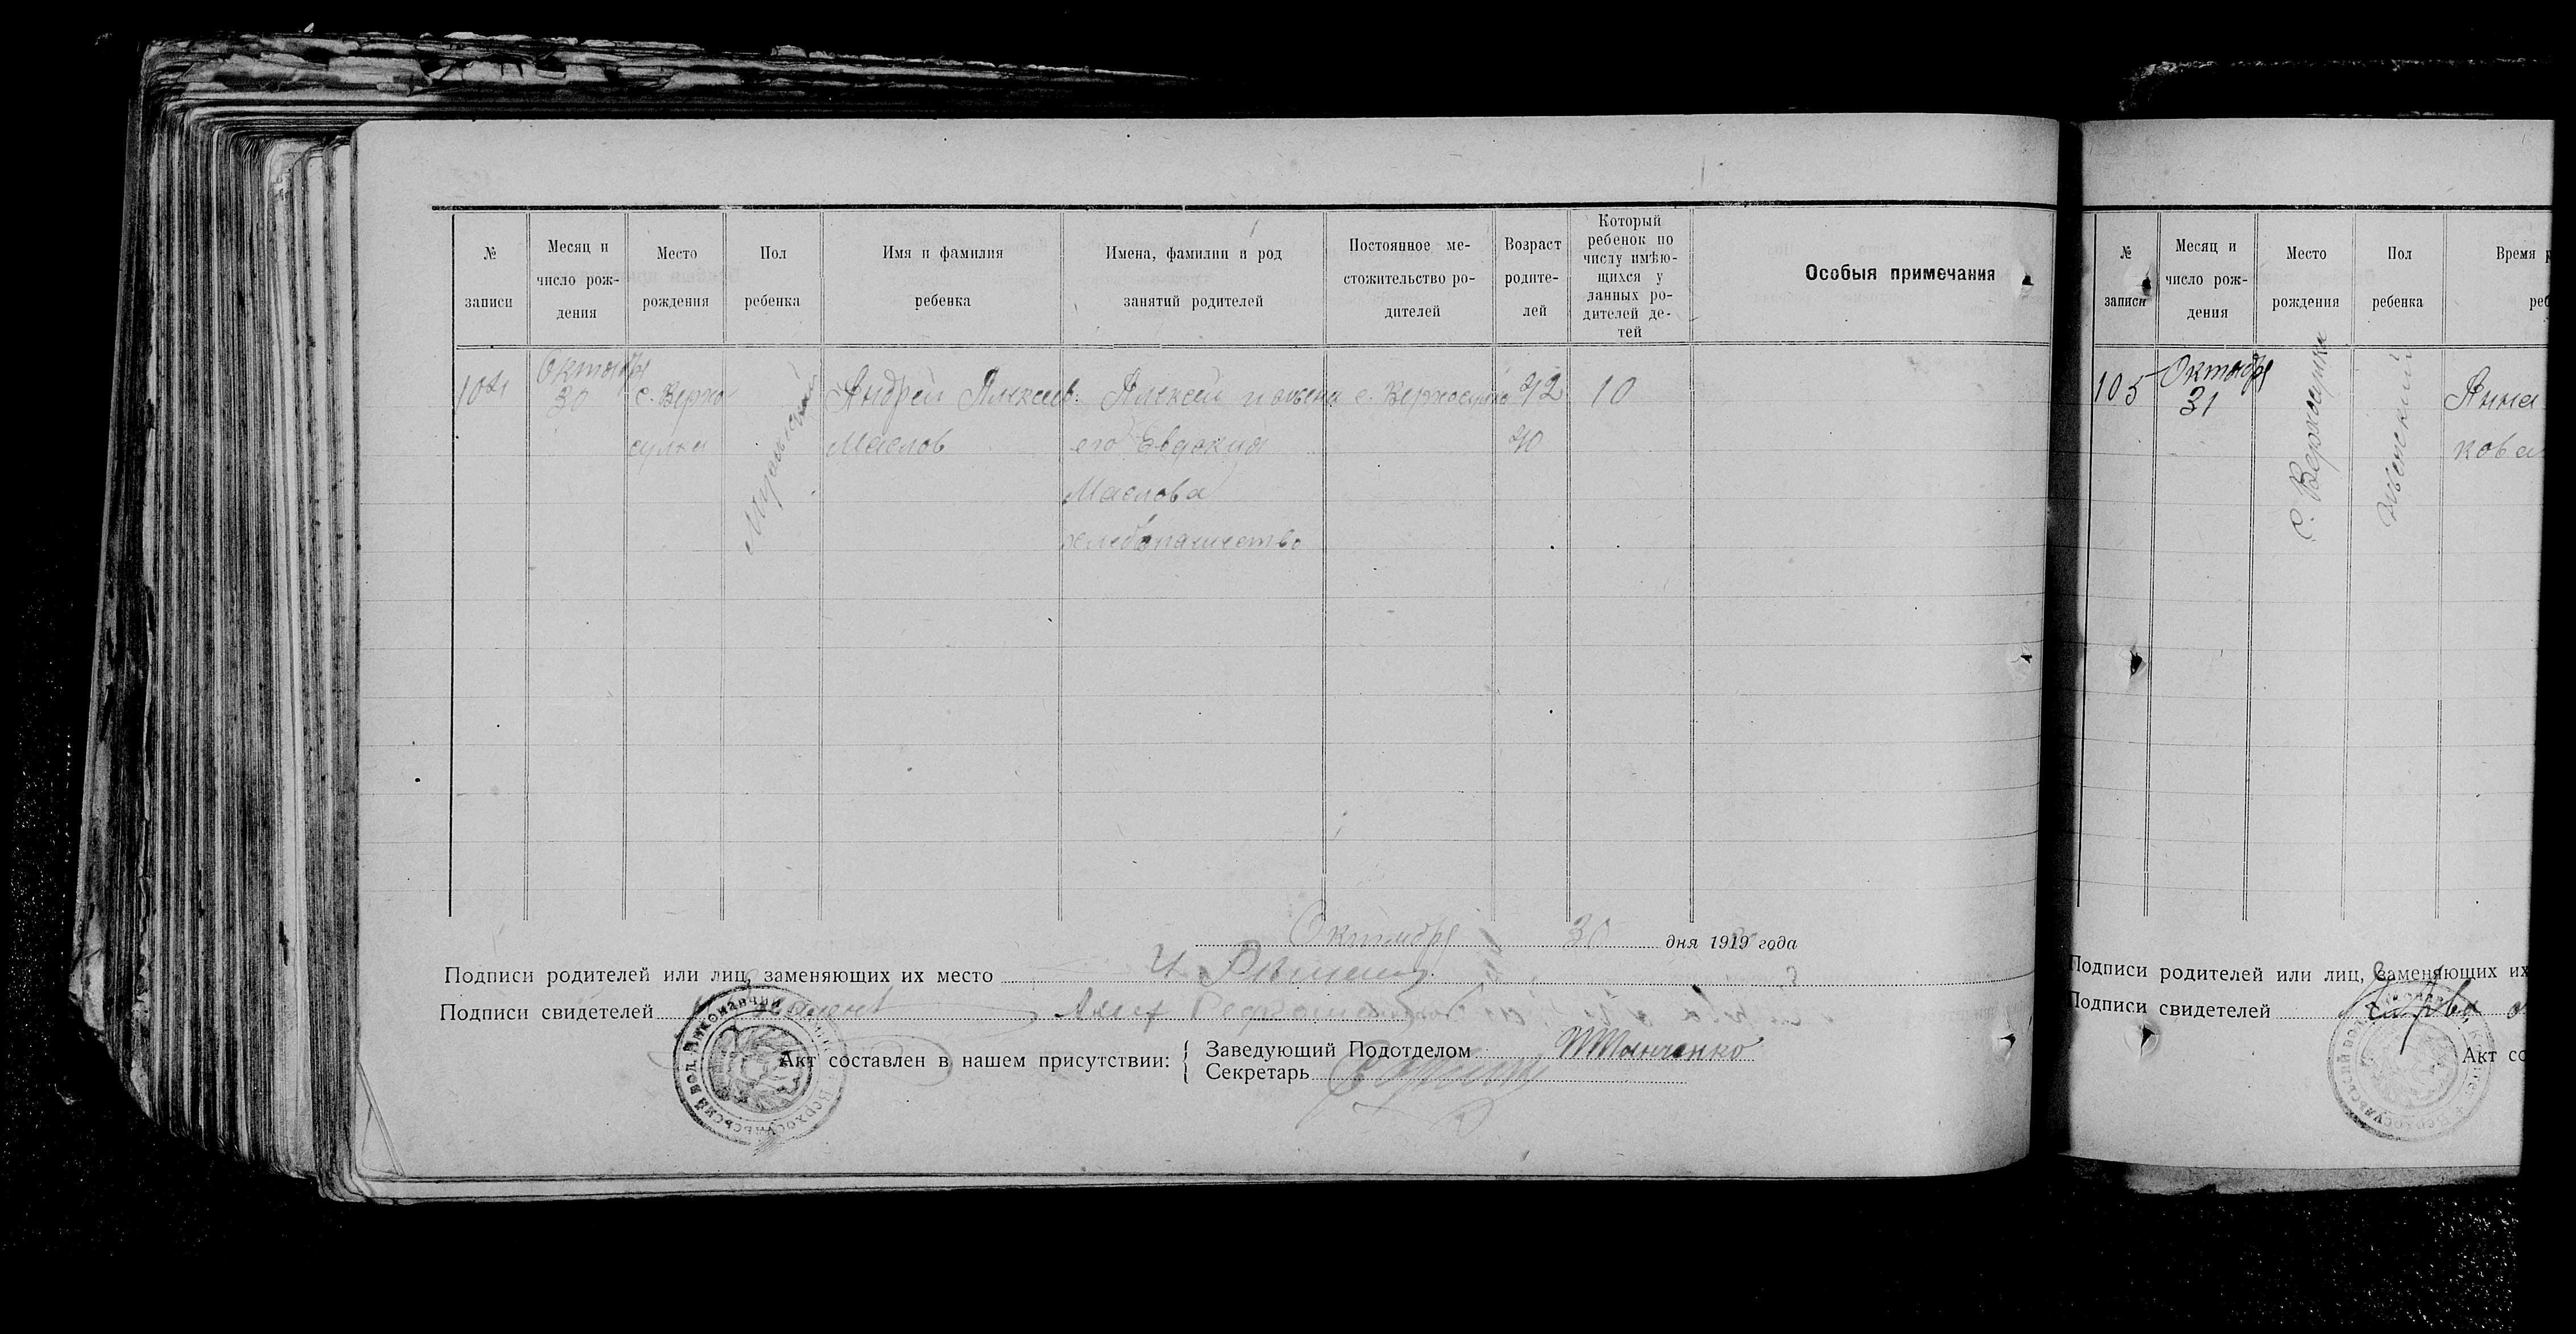 № записи
Месяц и число рож-
дения
Место рождения
Пол ребенка
Имя и фамилия ребенка
Имена, фамилии и род занятий родителей
Постоянное ме-
стожительство ро-
дителей
Возраст родите-
лей
Который ребенок по числу имѣю-
щихся у данных ро-
дителей де-
тей
Особыя примечания
104
Октября
30
с. Верхо
сулка
Мужеский
Андрей Алексеев.
Маслов
Алексей и жена
его Евдокия
Маслова
хлебопашество
с. Верхосулка
42
40
10
Октября 30 дня 1919 года
Подписи родителей или лиц, заменяющих их место
Подписи свидетелей
Акт составлен в нашем присутствии:
Заведующий Подотделом
Секретарь
№ записи
Месяц и число рож-
дения
Место рождения
Пол ребенка
Время
реб
105
Октября
31
с. Верхосулка
Женский
Анна
ковал
Подписи родителей или лиц, заменяющих их
Подписи свидетелей
Акт со